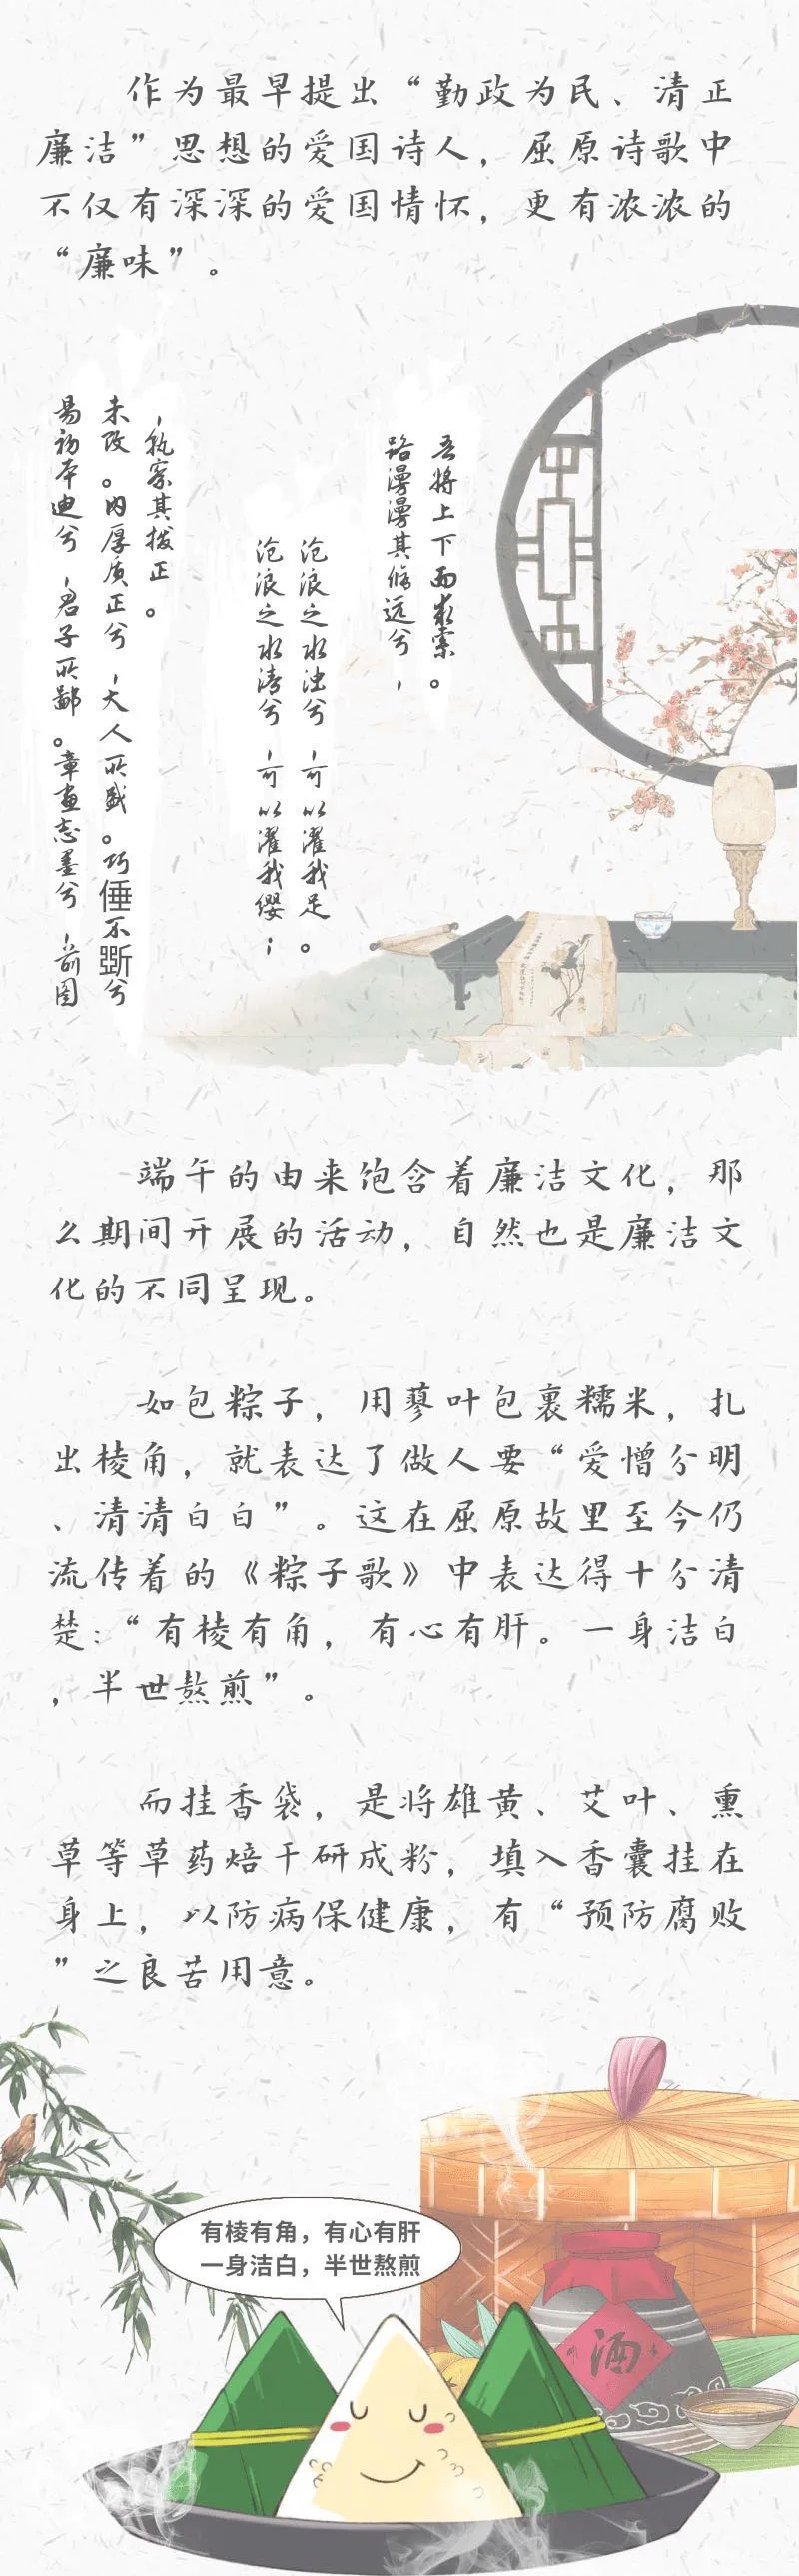 作为最早提出“勤政为民、清正
廉洁”思想的爱国诗人，屈原诗歌中
不仅有深深的爱国情怀，更有浓浓的
“廉味”。
易初本迪兮，君子所鄙。章画志墨兮，前图
未改。内厚质正兮，大人所盛。巧倕不斲兮
，孰察其拨正。
沧浪之水清兮，可以濯我缨；
沧浪之水浊兮，可以濯我足。
路漫漫其修远兮，
吾将上下而求索。
端午的由来饱含着廉洁文化，那
么期间开展的活动，自然也是廉洁文
化的不同呈现。
如包粽子，用蓼叶包裹糯米，扎
出棱角，就表达了做人要“爱憎分明
、清清白白”。这在屈原故里至今仍
流传着的《粽子歌》中表达得十分清
楚:“有棱有角，有心有肝。一身洁白
，半世熬煎”。
而挂香袋，是将雄黄、艾叶、熏
草等草药焙干研成粉，填入香囊挂在
身上，以防病保健康，有“预防腐败
”之良苦用意。
有棱有角，有心有肝
一身洁白，半世熬煎
酒